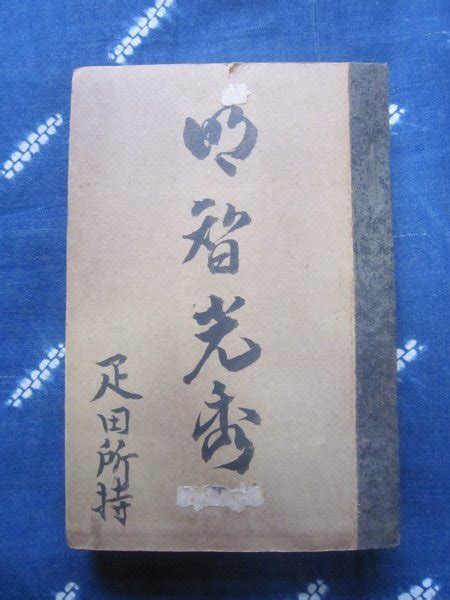 明智光秀
疋田所持